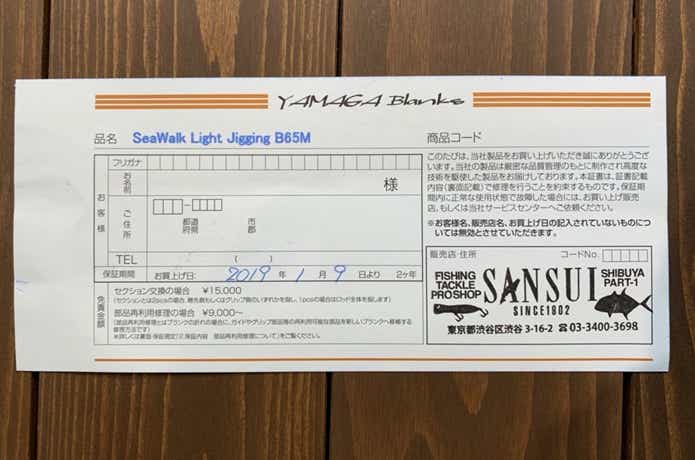 YAMAGA Blanks
品名 SeaWalk Light Jigging B65M
商品コード
フリガナ
お客様
お名前
様
ご住所
都道府県
市郡
TEL ( )
保証期間 お買上げ日: 2019 年 1 月 9 日より 2ヶ年
免責金額
セクション交換の場合 ¥15,000
(セクションとは2pcsの場合、穂先側もしくはグリップ側のいずれかを指し、1pcsの場合はロッド全体を指します)
部品再利用修理の場合 ¥9,000~
(部品再利用修理とはブランクの折れの場合に、ガイドやグリップ部品等の再利用可能な部品を新しいブランクへ移植する修理方法です)
このたびは、当社製品をお買い上げいただき誠にありがとうござ
います。当社製品は厳密な品質管理のもとに制作され高度な
技術を駆使した製品をお届けしております。本証書は、証書記載
内容(裏面記載)で修理を行うことを約束するものです。保証期
間内に正常な使用状態で故障した場合には、お買い上げ販売
店、もしくは当社サービスセンターへご依頼ください。
※お客様名、販売店名、お買上げ日の記入されていないものにつ
いては無効とさせていただきます。
販売店・住所
コードNo.
FISHING
TACKLE
PRO SHOP
SANSUI
SINCE1902
SHIBUYA
PART-1
東京都渋谷区渋谷 3-16-2 ☎ 03-3400-3698